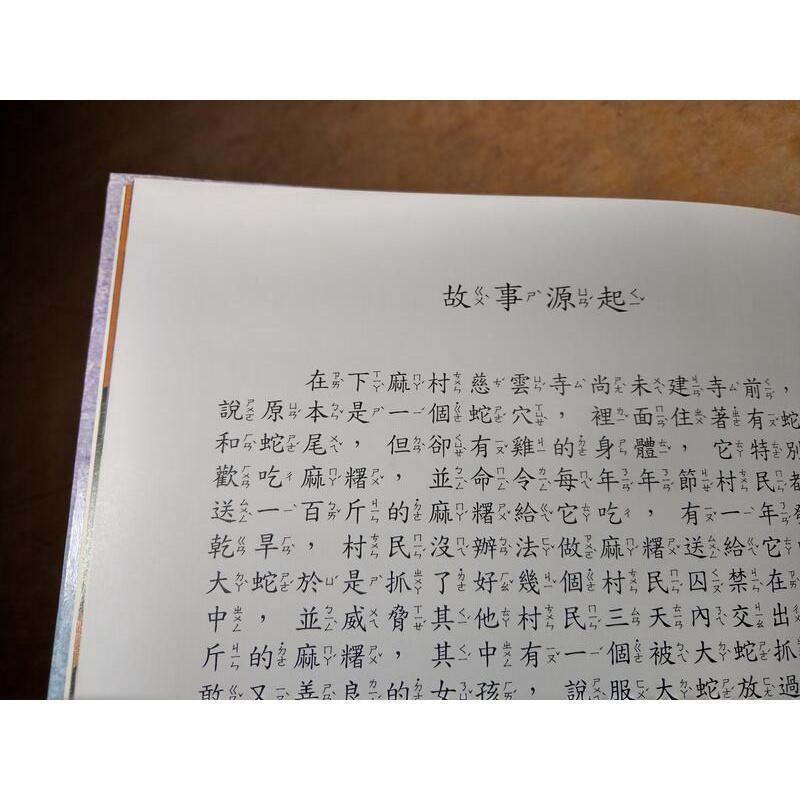 故事源起
在下麻村慈雲寺尚未建寺前，
說原本是一個蛇穴，裡面住著有蛇
和蛇尾，但卻有雞的身體，它特別
歡吃麻糬，並命令每年年節村民都
送一百斤的麻糬給它吃，有一年
乾旱，村民沒辦法做麻糬送給它
大蛇於是抓了好幾個村民囚禁在
中，並威脅其他村民三天內交出
斤的麻糬，其中有一個被大蛇抓
敢又善良的女孩，說服大蛇放過